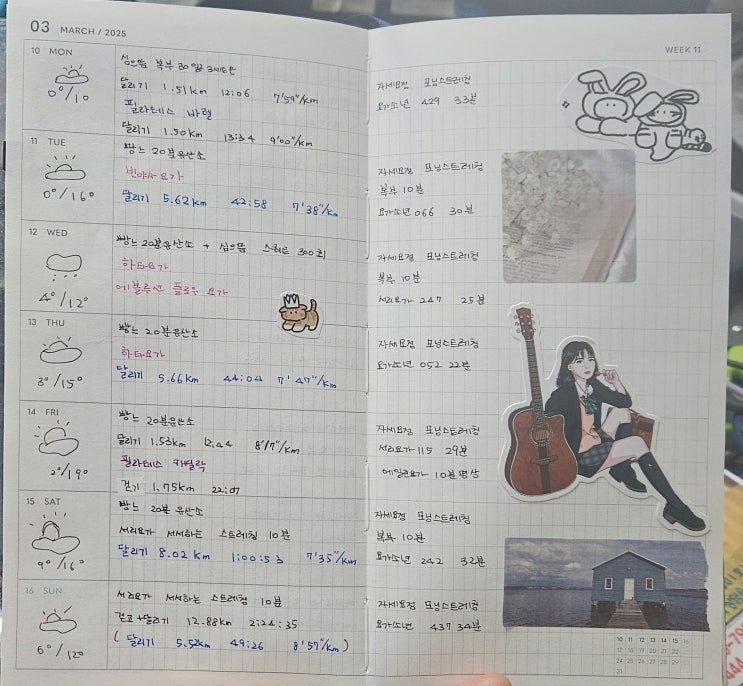 03 MARCH / 2025
10 MON
0°/10
심으뜸 복부 30일 3세트
달리기 1.51km 12:06 7'59"/km
필라테스 바렐
달리기 1.50km 13:34 9'00"/km
11 TUE
0°/16°
빵느 20분유산소
빈야사 요가
달리기 5.62km 42:58 7'38"/km
12 WED
4°/12°
빵느 20분유산소 + 심으뜸 스쿼트 300회
하타요가
에볼루션 플로우 요가
13 THU
3°/15°
빵느 20분유산소
하타요가
달리기 5.66km 44:04 7'47"/km
14 FRI
2°/19°
빵느 20분유산소
달리기 1.53km 12.44 8'17"/km
필라테스 캐딜락
걷기 1.75km 22:07
15 SAT
9°/16°
빵느 20분 유산소
서리요가 서서하는 스트레칭 10분
달리기 8.02km 1:00:53 7'35"/km
16 SUN
6°/12°
서리요가 서서하는 스트레칭 10분
걷고+달리기 12.88km 2:24:35
( 달리기 5.52km 49:26 8'57"/km )
WEEK 11
자세요정 모닝스트레칭
요가소년 429 33분
자세요정 모닝스트레칭
복부 10분
요가소년 066 30분
자세요정 모닝스트레칭
복부 10분
서리요가 247 25분
자세요정 모닝스트레칭
요가소년 052 22분
자세요정 모닝스트레칭
서리요가 115 29분
에일린요가 10분명상
자세요정 모닝스트레칭
복부 10분
요가소년 242 32분
자세요정 모닝스트레칭
요가소년 437 34분
10 11 12 13 14 15 16
17 18 19 20 21 22 23
24 25 26 27 28 29 30
31